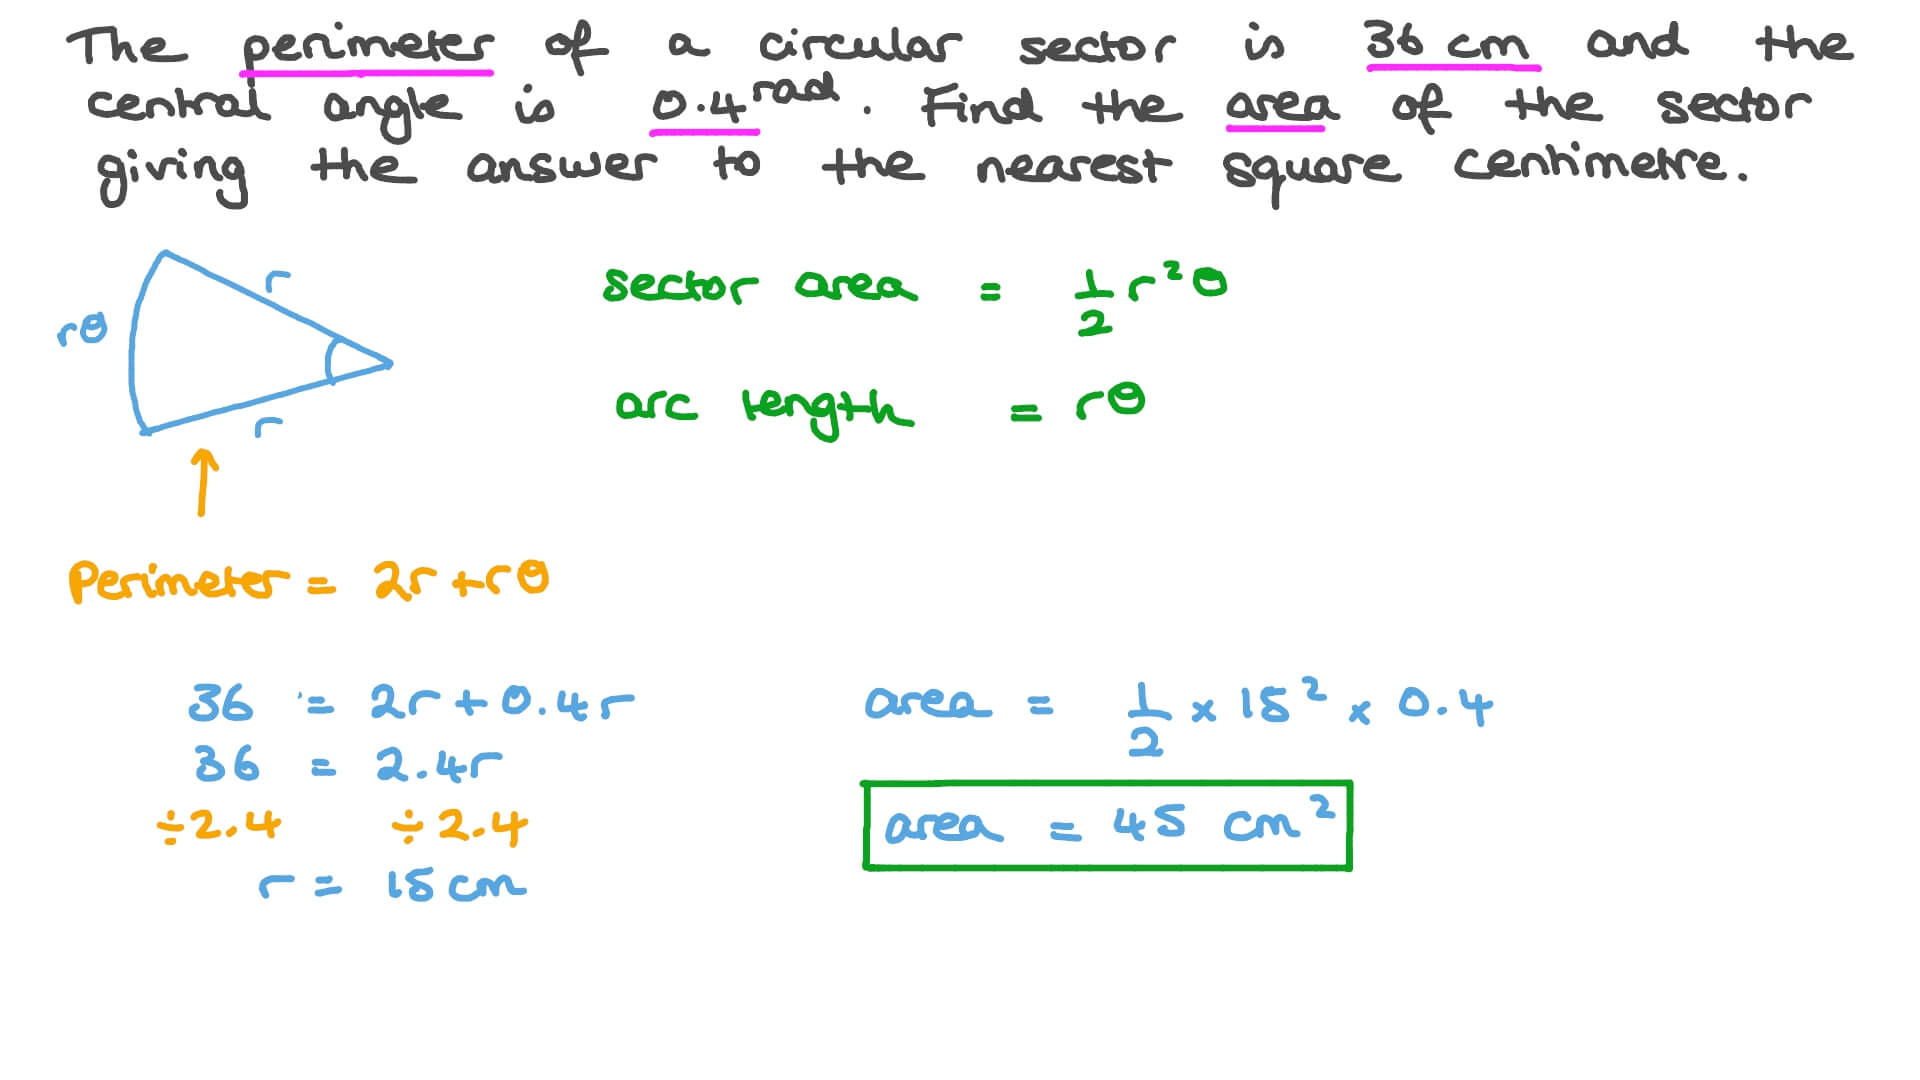 The perimeter of a circular sector is 36 cm and the
central angle is 0.4 rad. Find the area of the sector
giving the answer to the nearest square centimetre.
r
rθ
r
sector area = 1/2 r²θ
arc length = rθ
Perimeter = 2r + rθ
36 = 2r + 0.4r
36 = 2.4r
÷2.4 ÷2.4
r = 15 cm
area = 1/2 × 15² × 0.4
area = 45 cm²